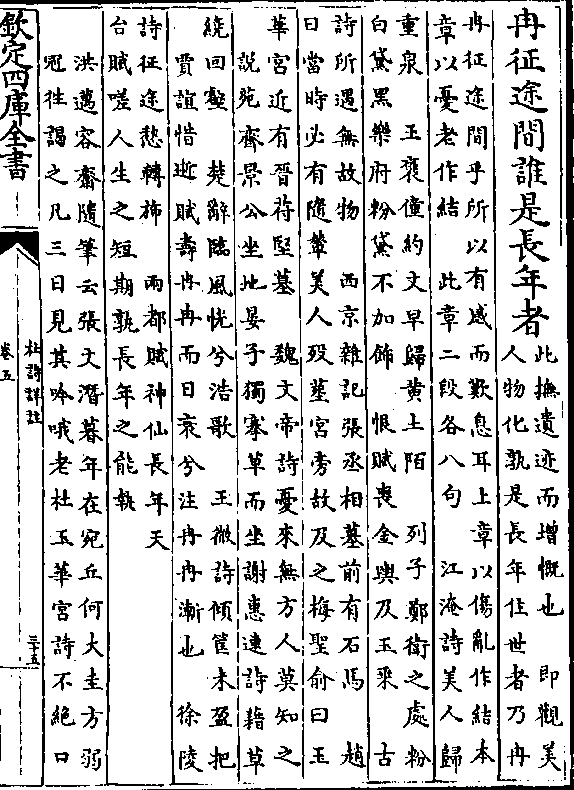 冉征途間誰是長年者此撫遺迹而增慨也　即觀美
人物化孰是長年住世者乃冉
冉征途間乎所以有感而歎息耳上章以傷亂作結本
章以憂老作結　此章二段各八句　江淹詩美人歸
重泉　王褒僮約文早歸黄土陌　列子鄭衛之處粉
白黛黑樂府粉黛不加飾　恨賦喪金輿及玉乘　古
詩所遇無故物　西京雜記張丞相墓前有石馬　趙
曰當時必有隨輦美人殁塟宮旁故及之梅聖俞曰玉
華宮近有晉苻堅墓　魏文帝詩憂來無方人莫知之
說苑齊景公坐地晏子獨搴草而坐謝惠連詩藉草
繞回壑　楚辭臨風怳兮浩歌　王微詩傾筐未盈把
賈誼惜逝賦壽冉冉而日衰兮注冉冉漸也　徐陵
詩征途愁轉斾　兩都賦神仙長年天
台賦嗟人生之短期孰長年之能執
洪邁容齋隨筆云張文潛暮年在宛丘何大圭方弱
冠徃謁之凡三日見其吟哦老杜玉華宮詩不絕口
欽定四庫全書
杜詩詳註
卷五
三十五